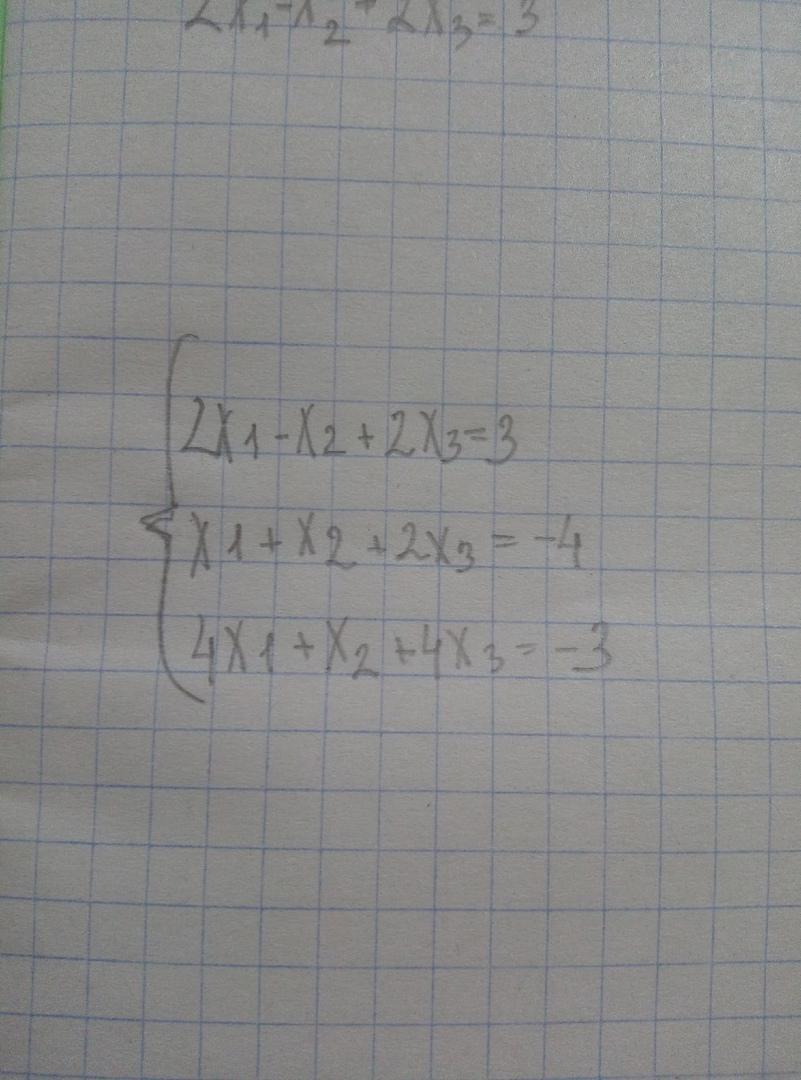 2x₁-x₂+2x₃=3
2x1-x2+2x3=3
x1+x2+2x3=-4
4x1+x2+4x3=-3